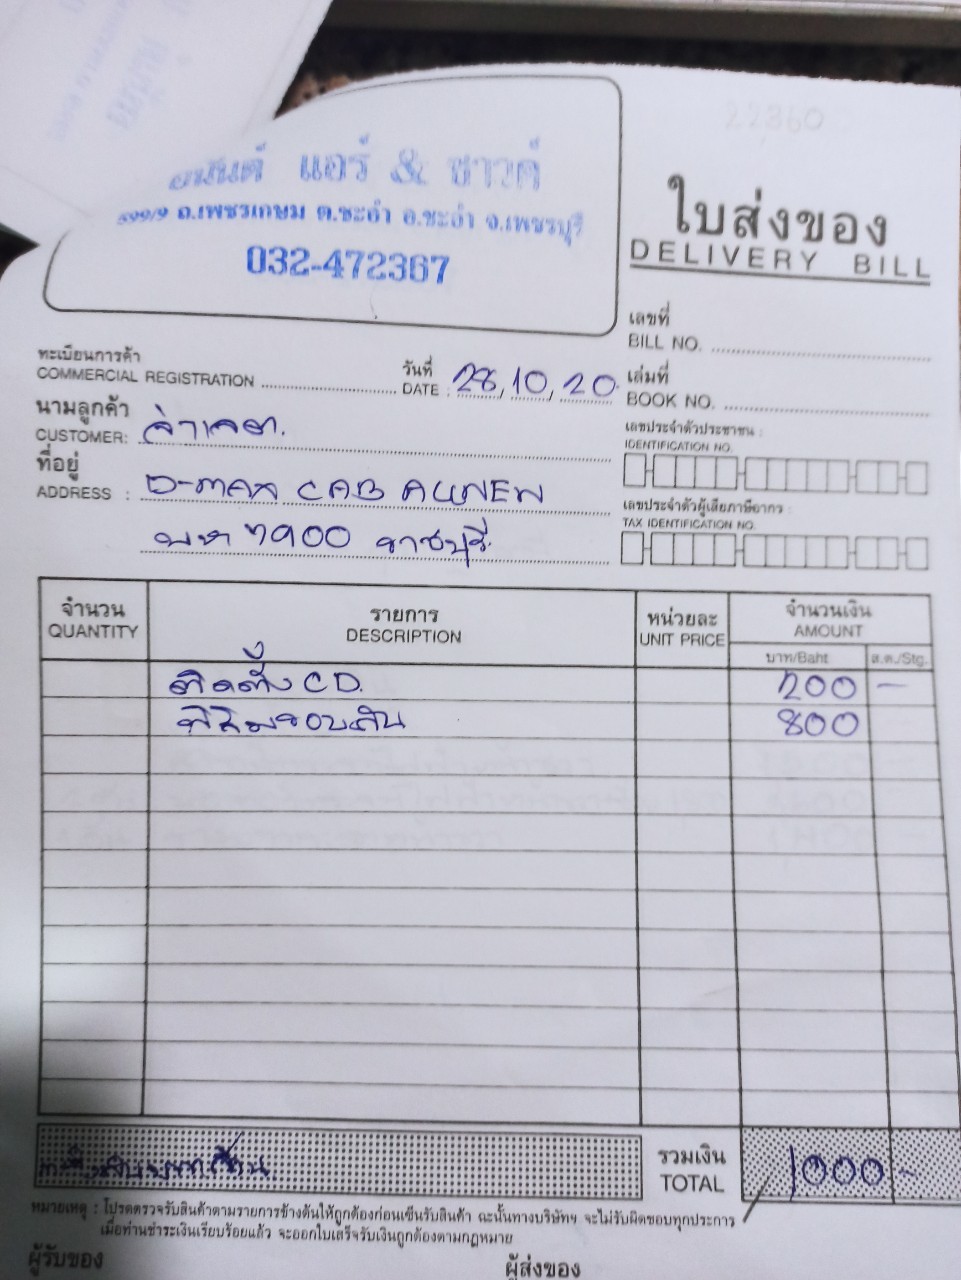 แอร์ & ซาวด์
ถ.เพชรเกษม ต.ชะอำ อ.ชะอำ จ.เพชรบุรี
032-472367
ใบส่งของ
DELIVERY BILL
เลขที่
BILL NO.
ทะเบียนการค้า
COMMERCIAL REGISTRATION
วันที่
DATE : 28, 10, 20.
เล่มที่
BOOK NO.
นามลูกค้า
CUSTOMER: จ่าเจต.
เลขประจำตัวประชาชน :
IDENTIFICATION NO.
ที่อยู่
ADDRESS : D-MAX CAB ALLNEW
เลขประจำตัวผู้เสียภาษีอากร :
TAX IDENTIFICATION NO.
7900 ราชบุรี.
จำนวน
QUANTITY
รายการ
DESCRIPTION
หน่วยละ
UNIT PRICE
จำนวนเงิน
AMOUNT
บาท/Baht
ส.ต./Stg.
ติดตั้ง CD. 200 -
ฟิล์มรอบคัน 800
หนึ่งพันบาทถ้วน
รวมเงิน
TOTAL
1000 -
หมายเหตุ : โปรดตรวจรับสินค้าตามรายการข้างต้นให้ถูกต้องก่อนเซ็นรับสินค้า ฉะนั้นทางบริษัทฯ จะไม่รับผิดชอบทุกประการ
เมื่อท่านชำระเงินเรียบร้อยแล้ว จะออกใบเสร็จรับเงินถูกต้องตามกฎหมาย
ผู้รับของ
ผู้ส่งของ